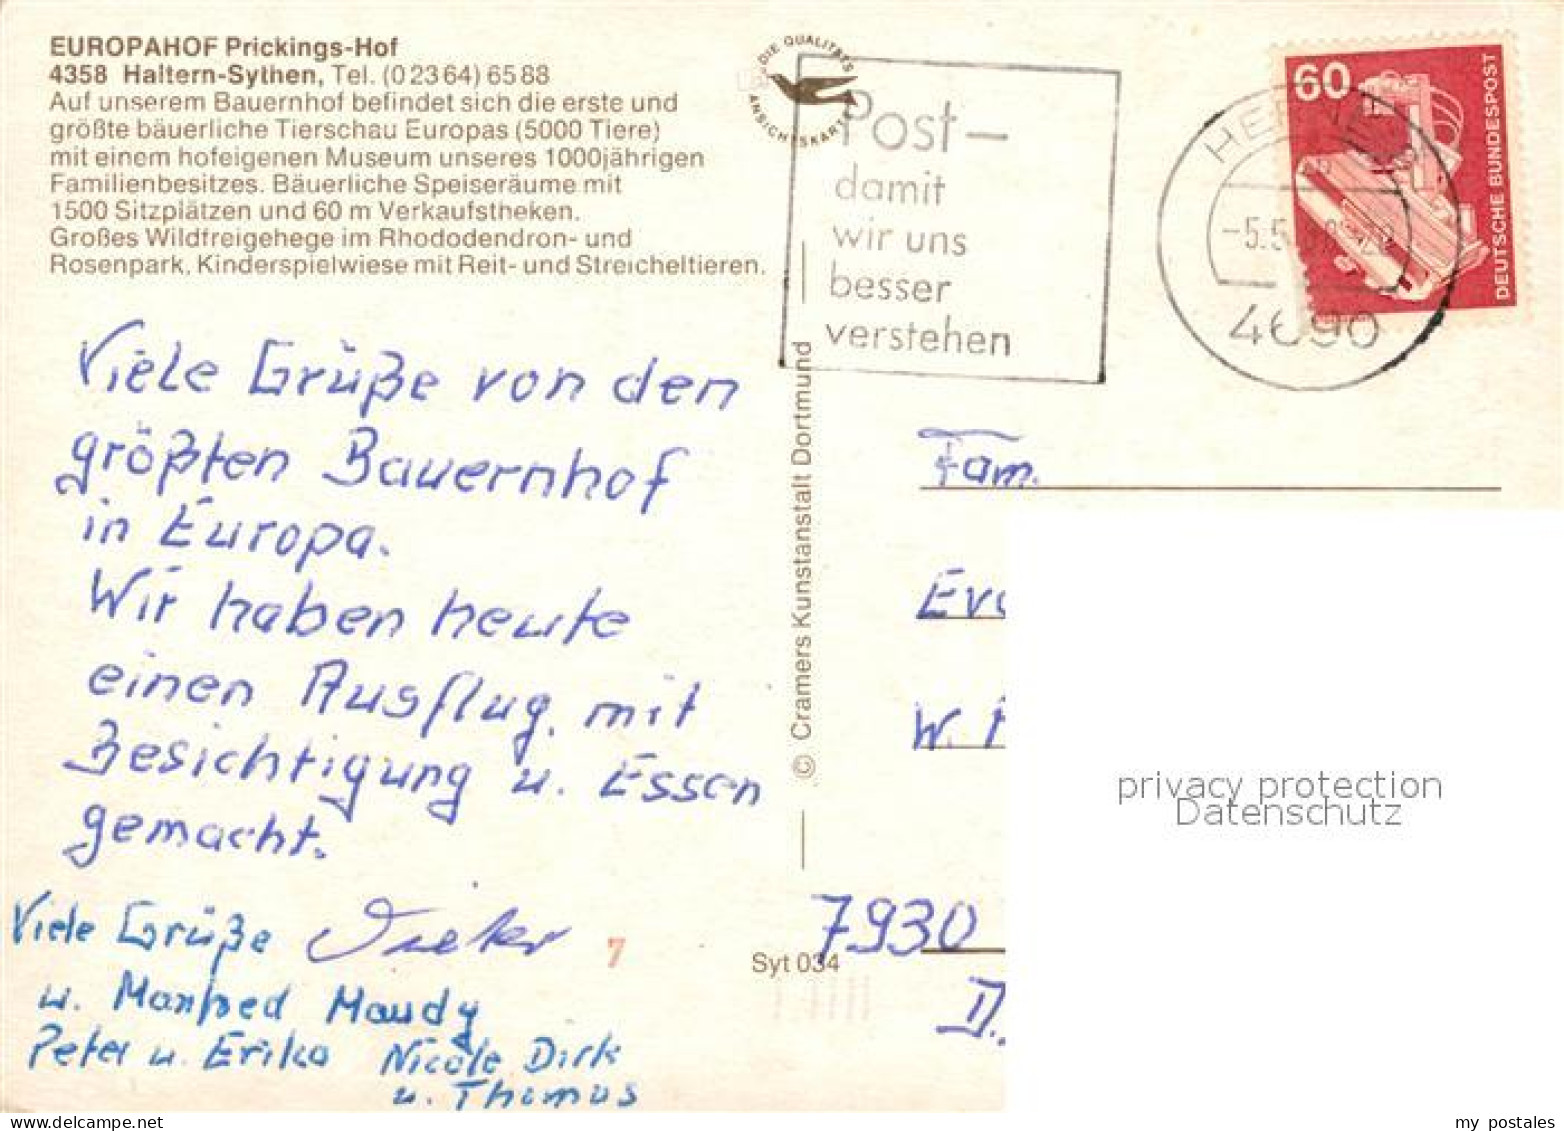 EUROPAHOF Prickings-Hof
4358 Haltern-Sythen, Tel. (0 23 64) 65 88
Auf unserem Bauernhof befindet sich die erste und
größte bäuerliche Tierschau Europas (5000 Tiere)
mit einem hofeigenen Museum unseres 1000jährigen
Familienbesitzes. Bäuerliche Speiseräume mit
1500 Sitzplätzen und 60 m Verkaufstheken.
Großes Wildfreigehege im Rhododendron- und
Rosenpark. Kinderspielwiese mit Reit- und Streicheltieren.
DIE QUALITÄTS
ANSICHTSKARTE
Post-
damit
wir uns
besser
verstehen
60
DEUTSCHE BUNDESPOST
4690
Viele Grüße von den
größten Bauernhof
in Europa.
Wir haben heute
einen Ausflug, mit
Besichtigung u. Essen
gemacht.
Viele Grüße Dieter
u. Manfred Mandy
Peter u. Erika Nicole Dirk
u. Thomas
7
© Cramers Kunstanstalt Dortmund
Syt 034
Fam.
W.
7930
D.
privacy protection
Datenschutz
my postales